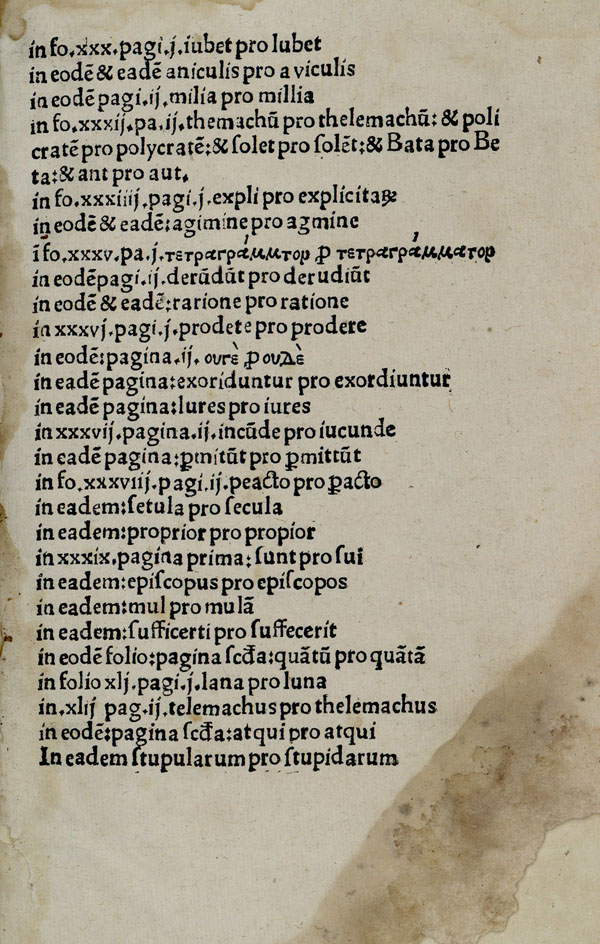 in fo.xxx.pagi.j.iubet pro lubet
in eodē & eadē aniculis pro a viculis
in eodē pagi.ij.milia pro millia
in fo.xxxij.pa.ij.themachū pro thelemachū: & poli
cratē pro polycratē:& ſolet pro ſolēt:& Bata pro Be
ta:& ant pro aut.
in fo.xxxiiij.pagi.j.expli pro explicitaꝝ
in eodē & eadē:agimine pro agmine
ī fo.xxxv.pa.j.τετραγράμμτορ ꝓ τετραγράμματορ
in eodē pagi.ij.derūdūt pro derudiūt
in eodē & eadē:rarione pro ratione
in xxxvj.pagi.j.prodete pro prodere
in eodē:pagina.ij. ουγὲ ꝓ ουδὲ
in eadē pagina:exoriduntur pro exordiuntur
in eadē pagina:lures pro iures
in xxxvij.pagina.ij.incūde pro iucunde
in eadē pagina:ꝑmitūt pro ꝑmittūt
in fo.xxxviij.pagi.ij.peacto pro ꝑacto
in eadem:ſetula pro ſecula
in eadem:proprior pro propior
in xxxix.pagina prima:ſunt pro ſui
in eadem:epiſcopus pro epiſcopos
in eadem:mul pro mulā
in eadem:ſufficerti pro ſuffecerit
in eodē folio:pagina ſcd̄a:quātū pro quātā
in folio xlj.pagi.j.lana pro luna
in.xlij pag.ij.telemachus pro thelemachus
in eodē:pagina ſcd̄a:atqui pro atqui
In eadem ſtupularum pro ſtupidarum